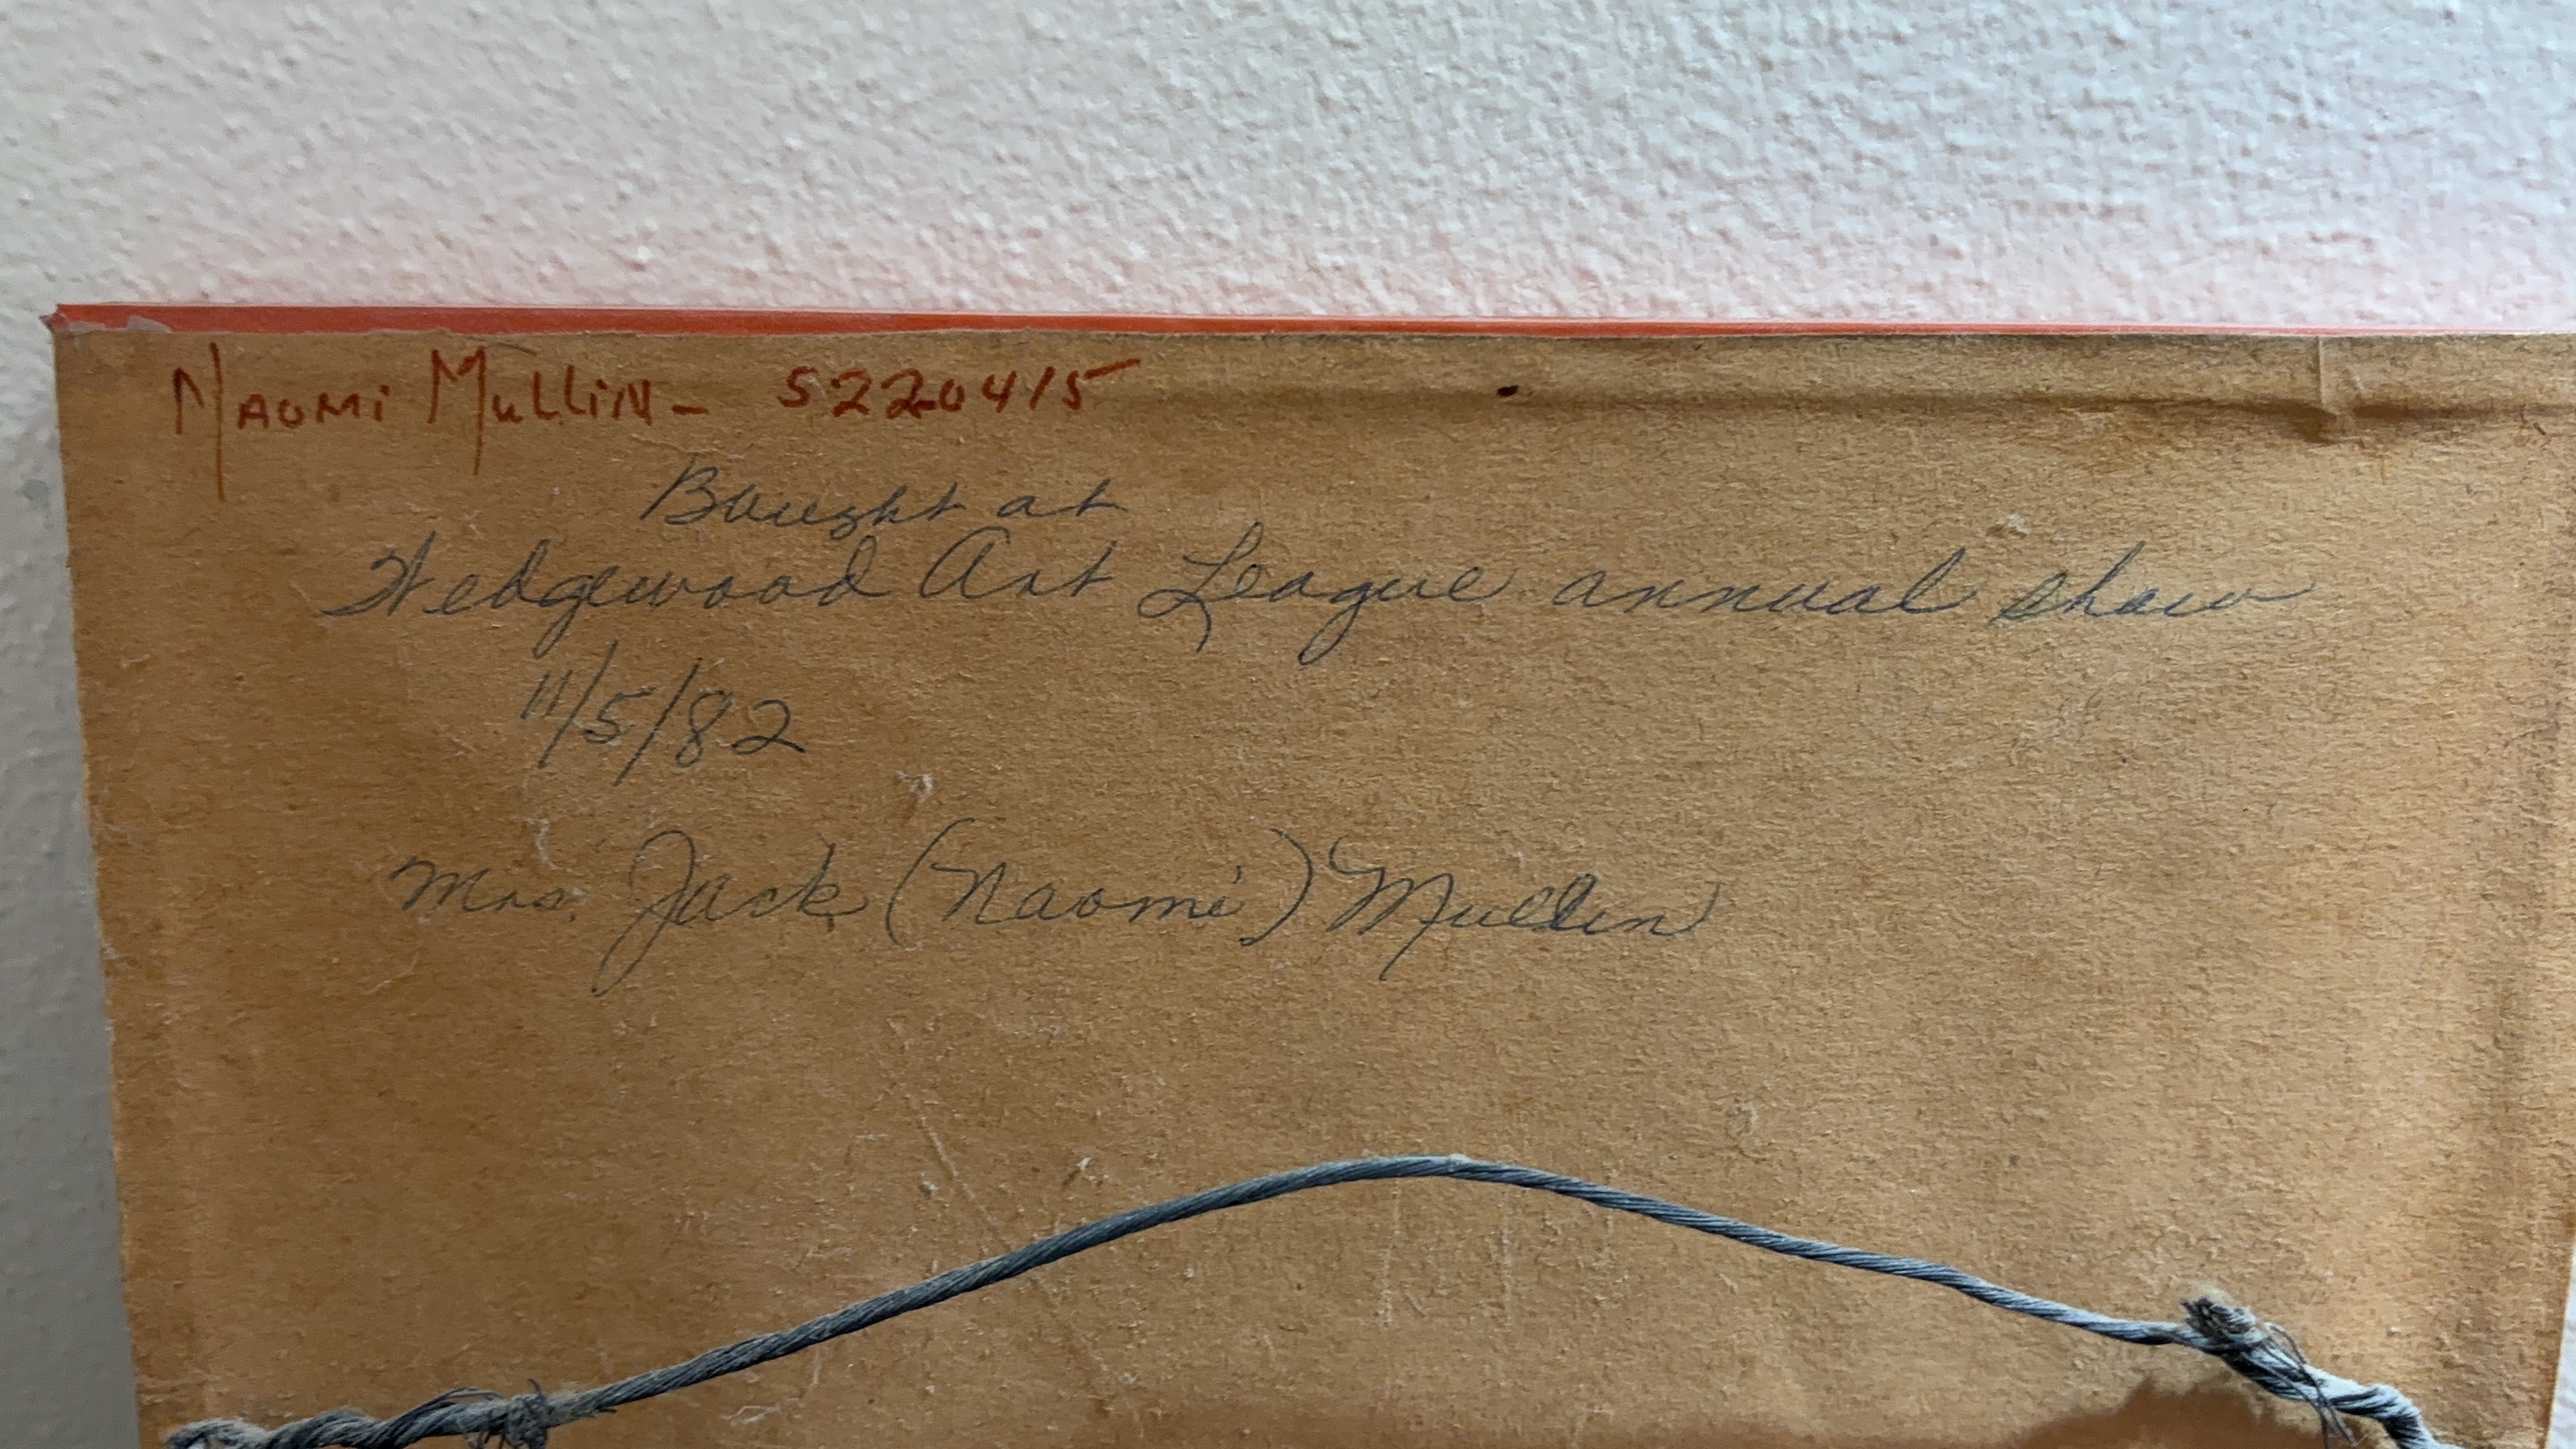 NAOMi MulliN- 5220415
Bought at
Wedgewood Art League annual show
11/5/82
Mrs. Jack (Naomi) Mullin